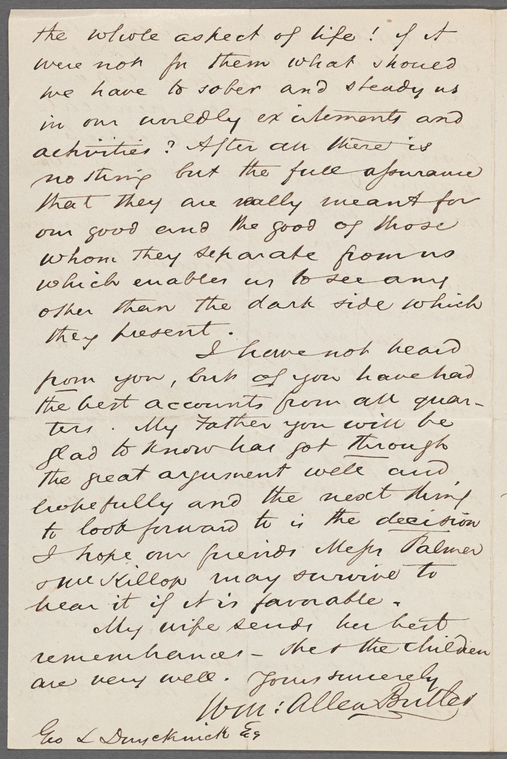 the whole aspect of life! if it
were not for them what should
we have to sober and steady us
in our worldly excitements and
activities? After all there is
nothing but the full assurance
that they are really meant for
our good and the good of those
whom they separate from us
which enables us to see any
other than the dark side which
they present.
I have not heard
from you, but of you have had
the best accounts from all quar-
ters. My Father you will be
glad to know has got through
the great argument well and
hopefully and the next thing
to look forward to is the decision
I hope our friends Messrs Palmer
& McKillop may survive to
hear it if it is favorable.
My wife sends her best
remembrances - she & the children
are very well. Yours sincerely
Wm: Allen Butler
Geo L Duyckinck Esq